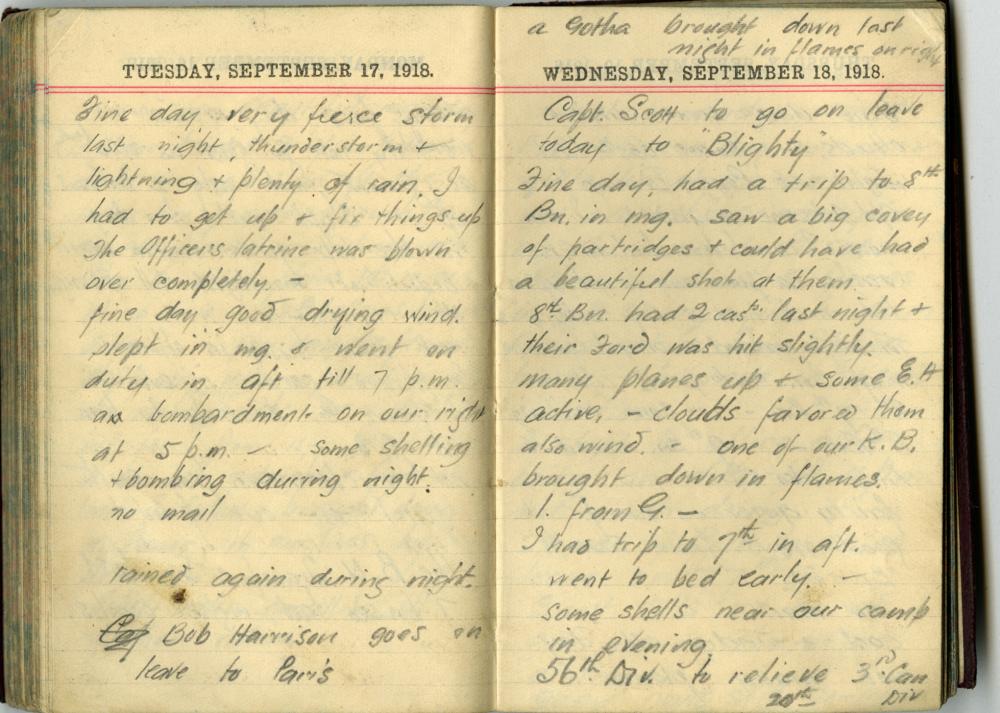 TUESDAY, SEPTEMBER 17, 1918.
Fine day very fierce storm
last night, thunderstorm +
lightning + plenty of rain. I
had to get up + fix things up
The Officers latrine was blown
over completely –
fine day good drying wind.
slept in mg. & went on
duty in aft till 7 p.m.
a bombardment on our right
at 5 p.m. – some shelling
+ bombing during night.
no mail
rained again during night.
Bob Harrison goes on
leave to Paris
a Gotha brought down last
night in flames on right
WEDNESDAY, SEPTEMBER 18, 1918.
Capt. Scott to go on leave
today to "Blighty"
Fine day, had a trip to 8th
Bn. in mg. saw a big covey
of partridges + could have had
a beautiful shot at them
8th Bn. had 2 cas. last night +
their Ford was hit slightly.
many planes up + some E.A
active, – clouds favored them
also wind. – one of our K.B.
brought down in flames.
1. from G. –
I had trip to 7th in aft.
went to bed early. –
some shells near our camp
in evening.
56th Div. to relieve 3rd Can
20th Div